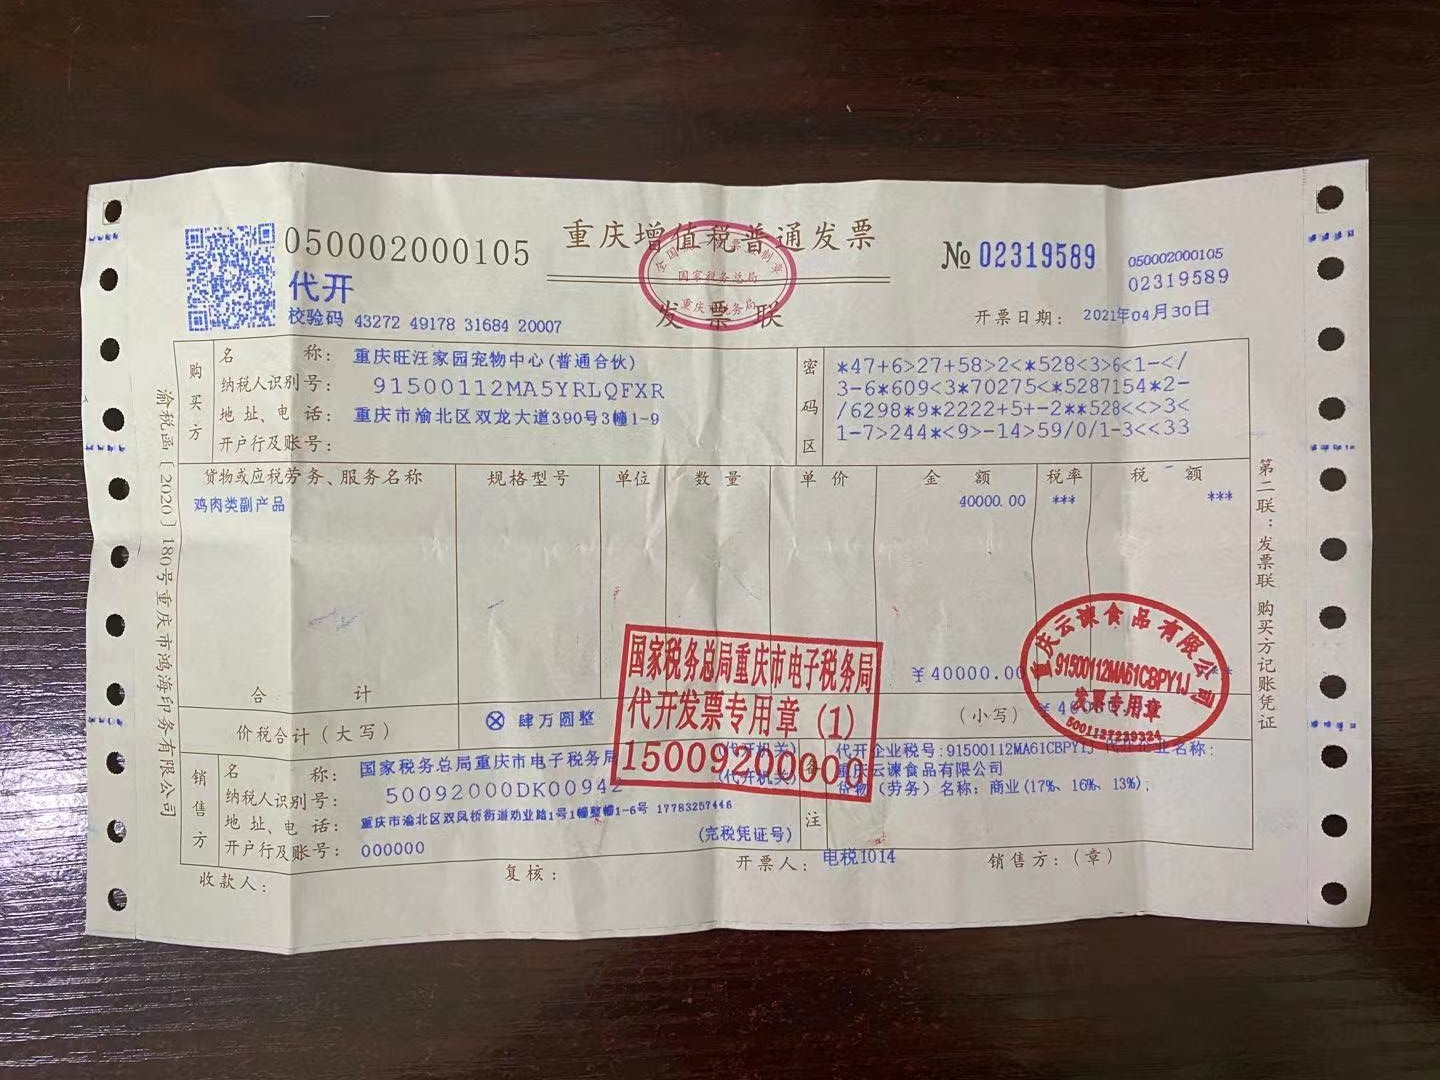 050002000105
重庆增值税普通发票
№ 02319589
050002000105
02319589
代开
发票联
国家税务总局
重庆市税务局
校验码 43272 49178 31684 20007
开票日期： 2021年04月30日
购买方
名 称： 重庆旺汪家园宠物中心(普通合伙)
纳税人识别号： 91500112MA5YRLQFXR
地址、电话： 重庆市渝北区双龙大道390号3幢1-9
开户行及账号：
密码区
*47+6>27+58>2<*528<3>6<1-</
3-6*609<3*70275<*5287154*2-
/6298*9*2222+5+-2**528<<>3<
1-7>244*<9>-14>59/0/1-3<<33
货物或应税劳务、服务名称 规格型号 单位 数量 单价 金额 税率 税额
鸡肉类副产品 40000.00 *** ***
合 计 ￥40000.00
价税合计（大写） ⊗ 肆万圆整 （小写）
销售方
名 称： 国家税务总局重庆市电子税务局 (代开机关)
纳税人识别号： 50092000DK00942 (代开机关)
地址、电话： 重庆市渝北区双凤桥街道劝业路1号1幢整幢1-6号 17783257446
开户行及账号： 000000 (完税凭证号)
备注
代开企业税号:91500112MA61CBPY1J 代开企业名称:
重庆云谏食品有限公司
货物（劳务）名称：商业(17%、16%、13%);
收款人： 复核： 开票人： 电税1014 销售方：（章）
国家税务总局重庆市电子税务局
代开发票专用章（1）
15009200000
重庆云谏食品有限公司
91500112MA61CBPY1J
发票专用章
渝税函〔2020〕180号重庆市鸿海印务有限公司
第二联：发票联 购买方记账凭证